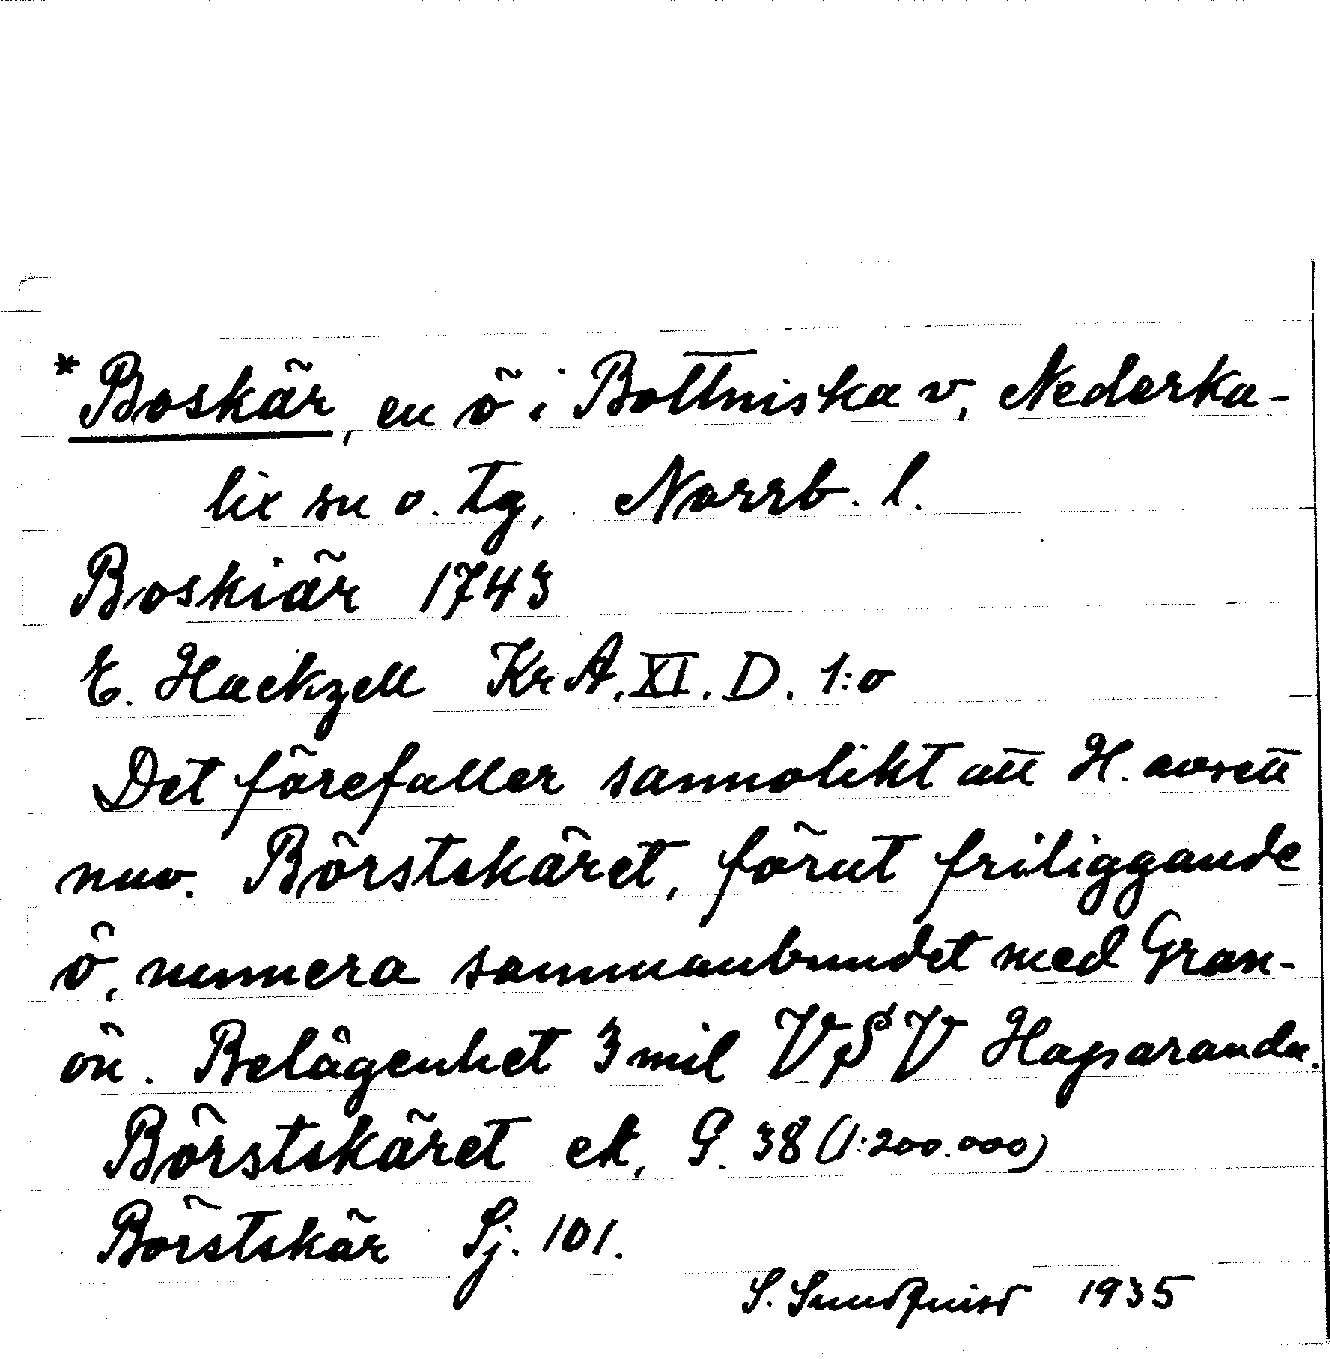 *Boskär, en ö i Bottniska v, Nederka-
lix sn o. tg, Norrb. l.
Boskiär 1743
E. Hackzell KrA. XI. D. 1:o
Det förefaller sannolikt att H. avsett
nuv. Börstskäret, förut friliggande
ö, numera sammanbundet med Gran-
ön. Belägenhet 3 mil VSV Haparanda.
Börstskäret ek, G. 38 (1:200.000)
Börstskär Sj. 101.
S. Sundquist 1935